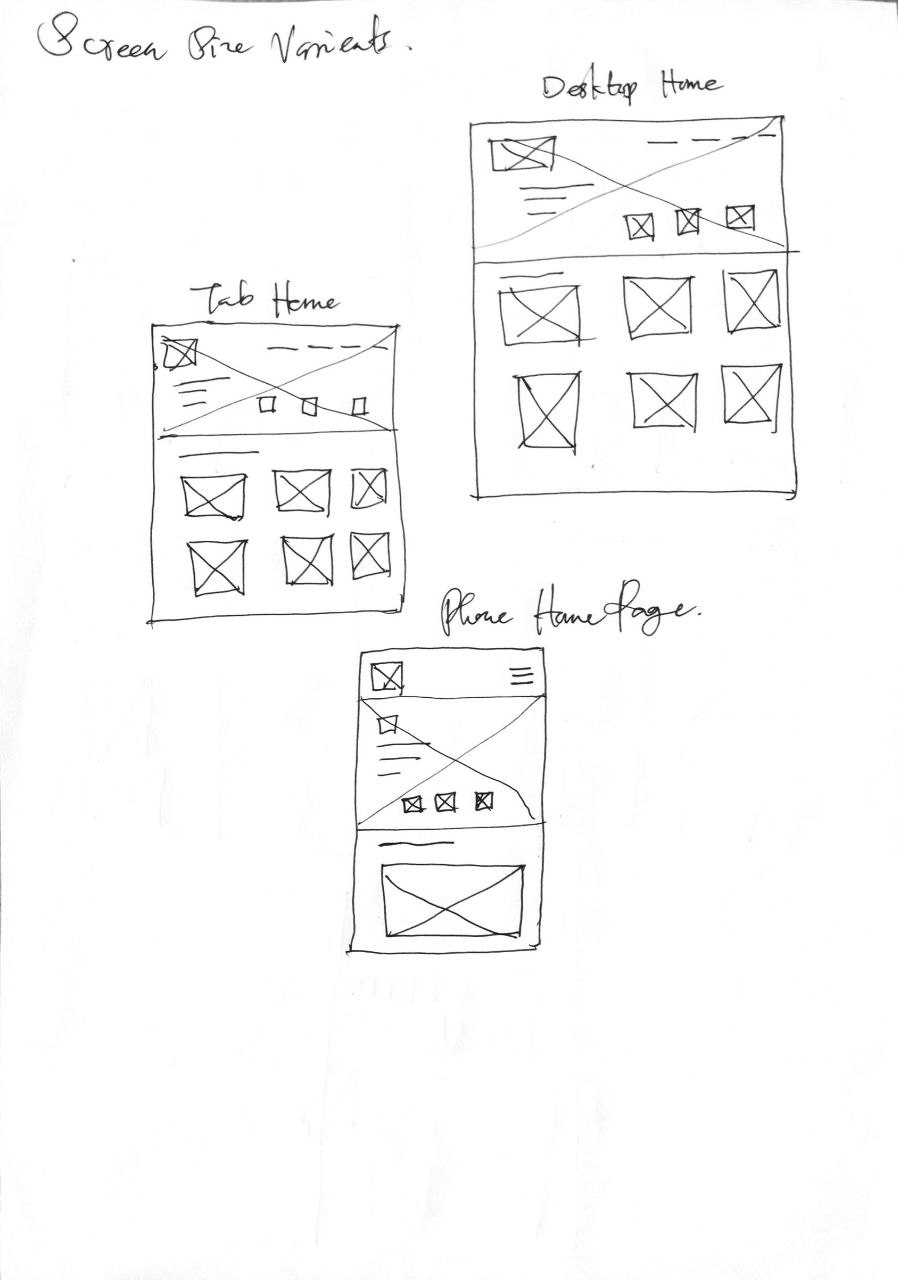 Screen Size Varrients.
Desktop Home
Tab Home
Phone Home Page.